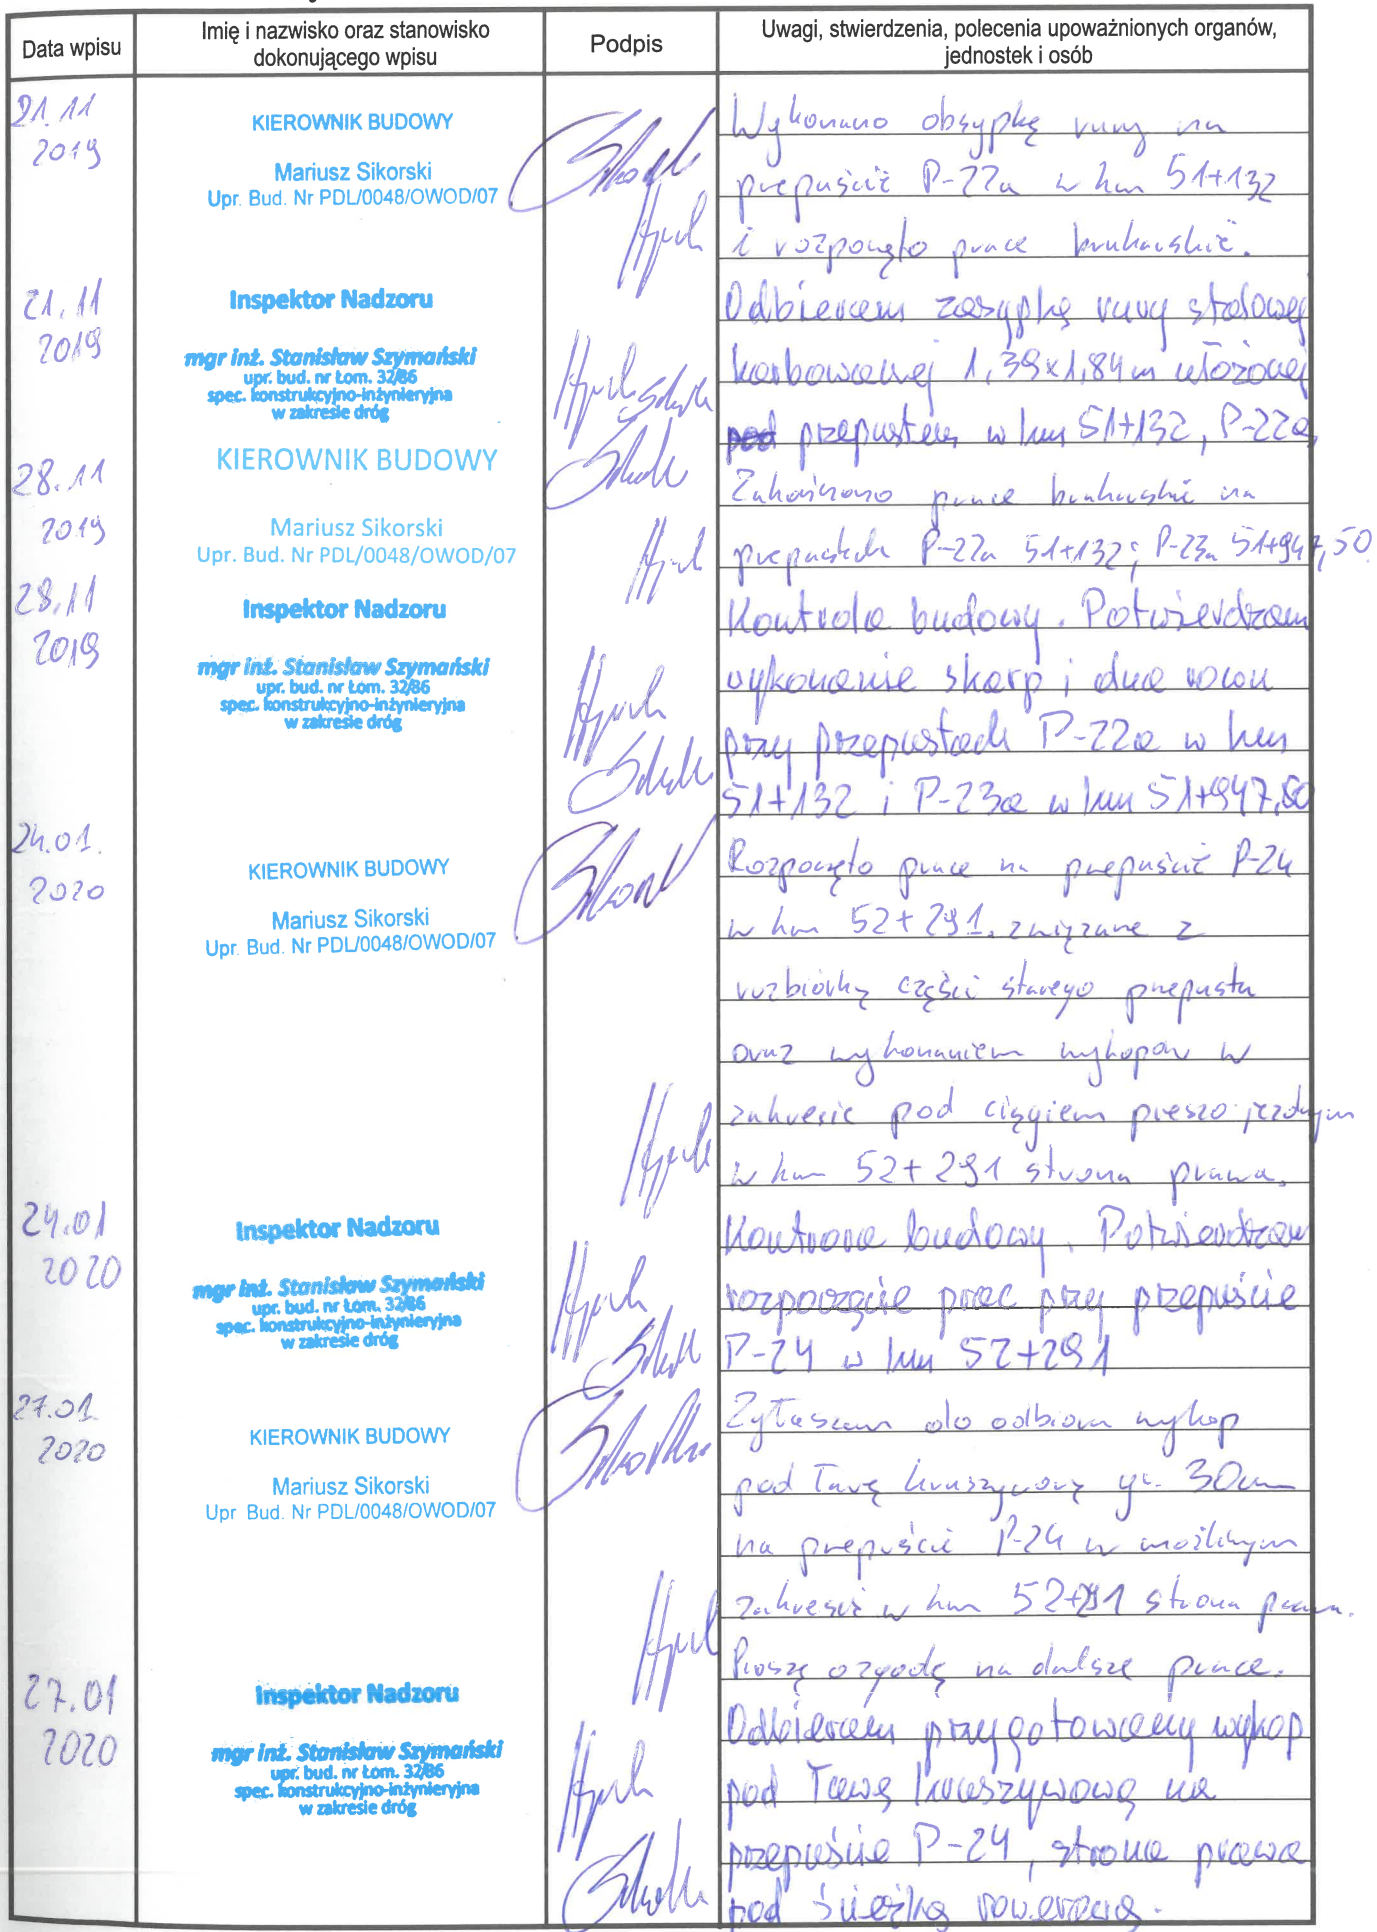 Data wpisu
Imię i nazwisko oraz stanowisko
dokonującego wpisu
Podpis
Uwagi, stwierdzenia, polecenia upoważnionych organów,
jednostek i osób
21.11
2019
KIEROWNIK BUDOWY
Mariusz Sikorski
Upr. Bud. Nr PDL/0048/OWOD/07
Wykonano obsypkę rury na
przepuście P-22a w km 51+132
i rozpoczęto prace brukarskie.
21.11
2019
Inspektor Nadzoru
mgr inż. Stanisław Szymański
upr. bud. nr Łom. 32/86
spec. konstrukcyjno-inżynieryjna
w zakresie dróg
Odbieram zasypkę rury stalowej
karbowanej 1,39x1,84m ułożonej
pod przepustem w km 51+132, P-22a,
28.11
2019
KIEROWNIK BUDOWY
Mariusz Sikorski
Upr. Bud. Nr PDL/0048/OWOD/07
Zakończono prace brukarskie na
przepustach P-22a 51+132; P-23a 51+947,50
28.11
2019
Inspektor Nadzoru
mgr inż. Stanisław Szymański
upr. bud. nr Łom. 32/86
spec. konstrukcyjno-inżynieryjna
w zakresie dróg
Kontrola budowy. Potwierdzam
wykonanie skarp i dna rowu
przy przepustach P-22a w km
51+132 i P-23a w km 51+947,50
24.01.
2020
KIEROWNIK BUDOWY
Mariusz Sikorski
Upr. Bud. Nr PDL/0048/OWOD/07
Rozpoczęto prace na przepuście P-24
w km 52+291. związane z
rozbiórką części starego przepustu
oraz wykonaniem wykopów w
zakresie pod ciągiem pieszo-jezdnym
w km 52+291 strona prawa.
24.01
2020
Inspektor Nadzoru
mgr inż. Stanisław Szymański
upr. bud. nr Łom. 32/86
spec. konstrukcyjno-inżynieryjna
w zakresie dróg
Kontrola budowy. Potwierdzam
rozpoczęcie prac przy przepuście
P-24 w km 52+291
27.01.
2020
KIEROWNIK BUDOWY
Mariusz Sikorski
Upr. Bud. Nr PDL/0048/OWOD/07
Zgłaszam do odbioru wykop
pod ławę kruszywową gr. 30cm
na przepuście P-24 w możliwym
zakresie w km 52+291 strona prawa.
Proszę o zgodę na dalsze prace.
27.01
2020
Inspektor Nadzoru
mgr inż. Stanisław Szymański
upr. bud. nr Łom. 32/86
spec. konstrukcyjno-inżynieryjna
w zakresie dróg
Odbieram przygotowany wykop
pod ławę kruszywową na
przepuście P-24, strona prawa
pod ścieżką rowerową.